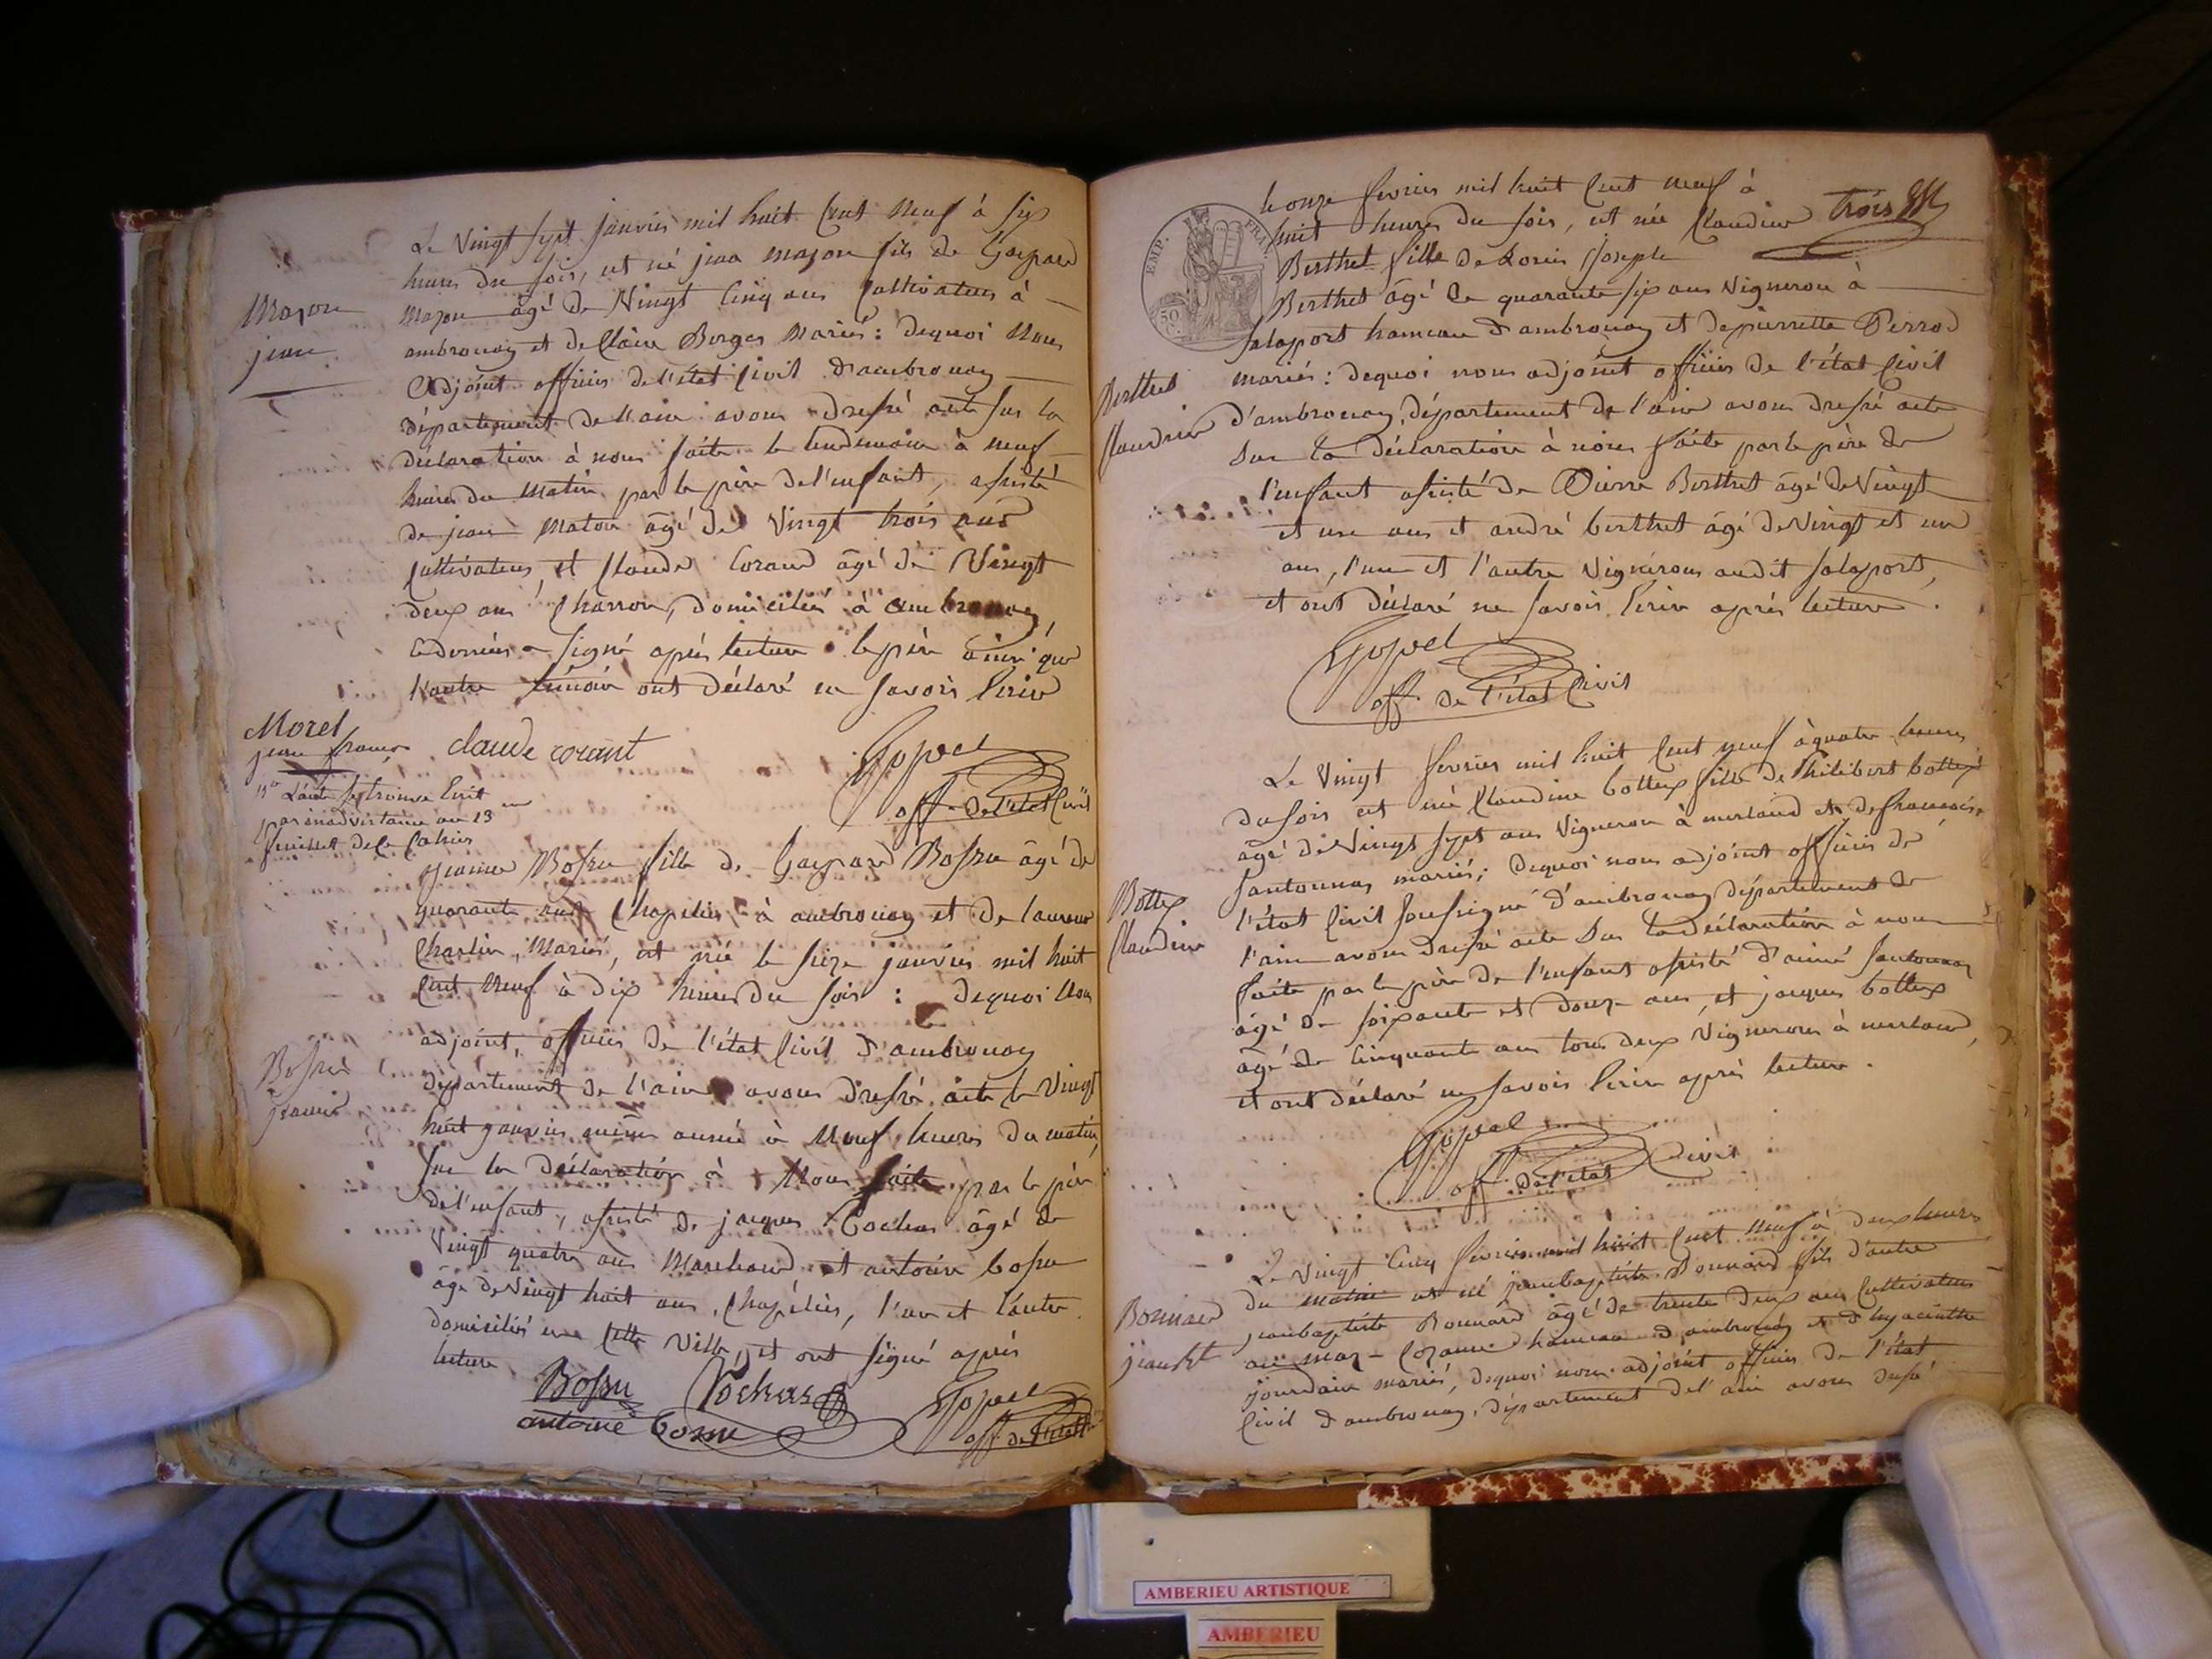 Le Vingt sept janvier mil huit Cent Neuf à six
heures du soir, est né jean mazon fils de Gaspard
mazon âgé de Vingt Cinq ans Cultivateur à
ambronay et de Claire Borges Mariés : dequoi Nous
Adjoint officier de l'état Civil d'ambronay
département de l'ain avons dressé acte sur la
déclaration à nous faite le lendemain à neuf
heures du Matin par le père de l'enfant, assisté
de jean Maton âgé de Vingt trois ans
Cultivateur, et Claude Corand âgé de Vingt
deux ans Charron, domiciliés à ambronay
le dernier a signé après lecture le père ainsi que
l'autre témoin ont déclaré ne savoir Ecrire
Mazon
jean
claude corant
off. de l'état Civil
Morel
jean françois
L'acte se trouve Ecrit
par inadvertance au 13
feuillet de ce Cahier
jeanne Bossu fille de Gaspard Bossu âgé de
quarante ans Chapelier à ambronay et de laurence
Charlin, Mariés, est née le seize janvier mil huit
Cent Neuf à dix heures du soir : dequoi Nous
adjoint, officier de l'état Civil d'ambronay
département de l'ain avons dressé acte le Vingt
huit janvier même année à Neuf heures du matin,
sur la déclaration à Nous faite par le père
de l'enfant, assisté de jacques Cochas âgé de
Vingt quatre ans Marchand et antoine bossu
âgé de Vingt huit ans, Chapelier, l'un et l'autre
domiciliés en Cette Ville, et ont signé après
lecture
Bossu
jeanne
Bossu Cochas
antoine bossu off de l'état
EMP. FRA.
50
C.
le onze fevrier mil huit Cent neuf à
huit heures du soir, est née Claudine trois
Berthet fille de Louis Joseph
Berthet âgé de quarante six ans Vigneron à
salaport hameau d'ambronay et de pierrette Perrod
mariés : dequoi nous adjoint officier de l'état Civil
d'ambronay, département de l'ain avons dressé acte
Sur la déclaration à nous faite par le père de
l'enfant assisté de Pierre Berthet âgé de Vingt
et un ans et andré berthet âgé de Vingt et un
ans, l'un et l'autre Vignerons audit salaport,
et ont déclaré ne savoir Ecrire après lecture.
Berthet
Claudine
off. de l'état Civil
Le Vingt fevrier mil huit Cent neuf à quatre heures
du soir est née Claudine bottex fille de Philibert bottex
âgé de Vingt sept ans Vigneron à merland et de françoise
santonnas mariés ; dequoi nous adjoint officier de
l'état Civil soussigné d'ambronay département de
l'ain avons dressé acte Sur la déclaration à nous
faite par le père de l'enfant assisté d'aimé santonnas
âgé de soixante et douze ans, et jacques bottex
âgé de Cinquante ans tous deux Vignerons à merland,
et ont déclaré ne savoir Ecrire après lecture.
Bottex
Claudine
off. de l'état Civil
Le Vingt Cinq fevrier mil huit Cent Neuf à deux heures
du matin est né jeanbaptiste Bonnard fils d'autre
jeanbaptiste Bonnard âgé de trente deux ans Cultivateur
au hameau d'ambronay et d'hyacinthe
jourdain mariés, dequoi nous adjoint officier de l'état
Civil d'ambronay, département de l'ain avons dressé
Bonnard
jean Bt
AMBERIEU ARTISTIQUE
AMBERIEU